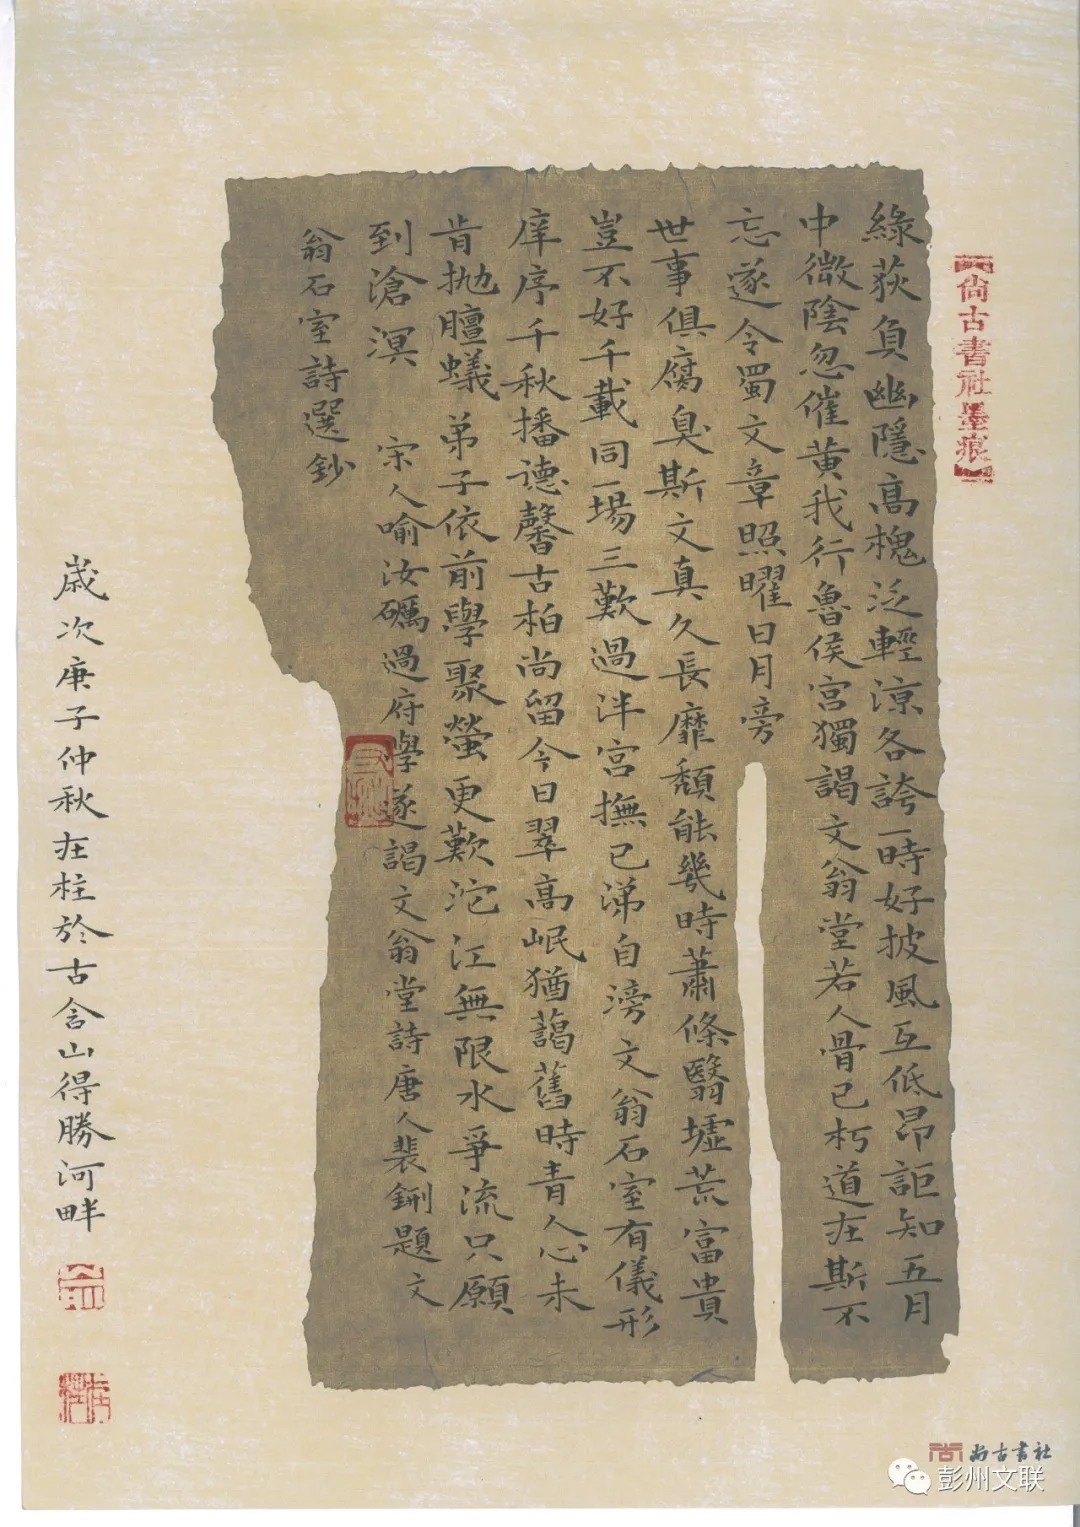 尚古書社墨痕
綠荻負幽隱高槐泛輕涼各誇一時好披風互低昂詎知五月
中微陰忽催黄我行魯侯宮獨謁文翁堂若人骨已朽道在斯不
忘遂令蜀文章照曜日月旁
世事俱腐臭斯文真久長靡頽能幾時蕭條翳墟荒富貴
豈不好千載同一場三歎過泮宮撫己涕自滂文翁石室有儀形
庠序千秋播德馨古柏尚留今日翠高岷猶藹舊時青人心未
肯抛膻蟻弟子依前學聚螢更歎沱江無限水爭流只願
到滄溟 宋人喻汝礪過府學遂謁文翁堂詩唐人裴鉶題文
翁石室詩選鈔
歲次庚子仲秋在柱於古含山得勝河畔
尚古書社
彭州文联